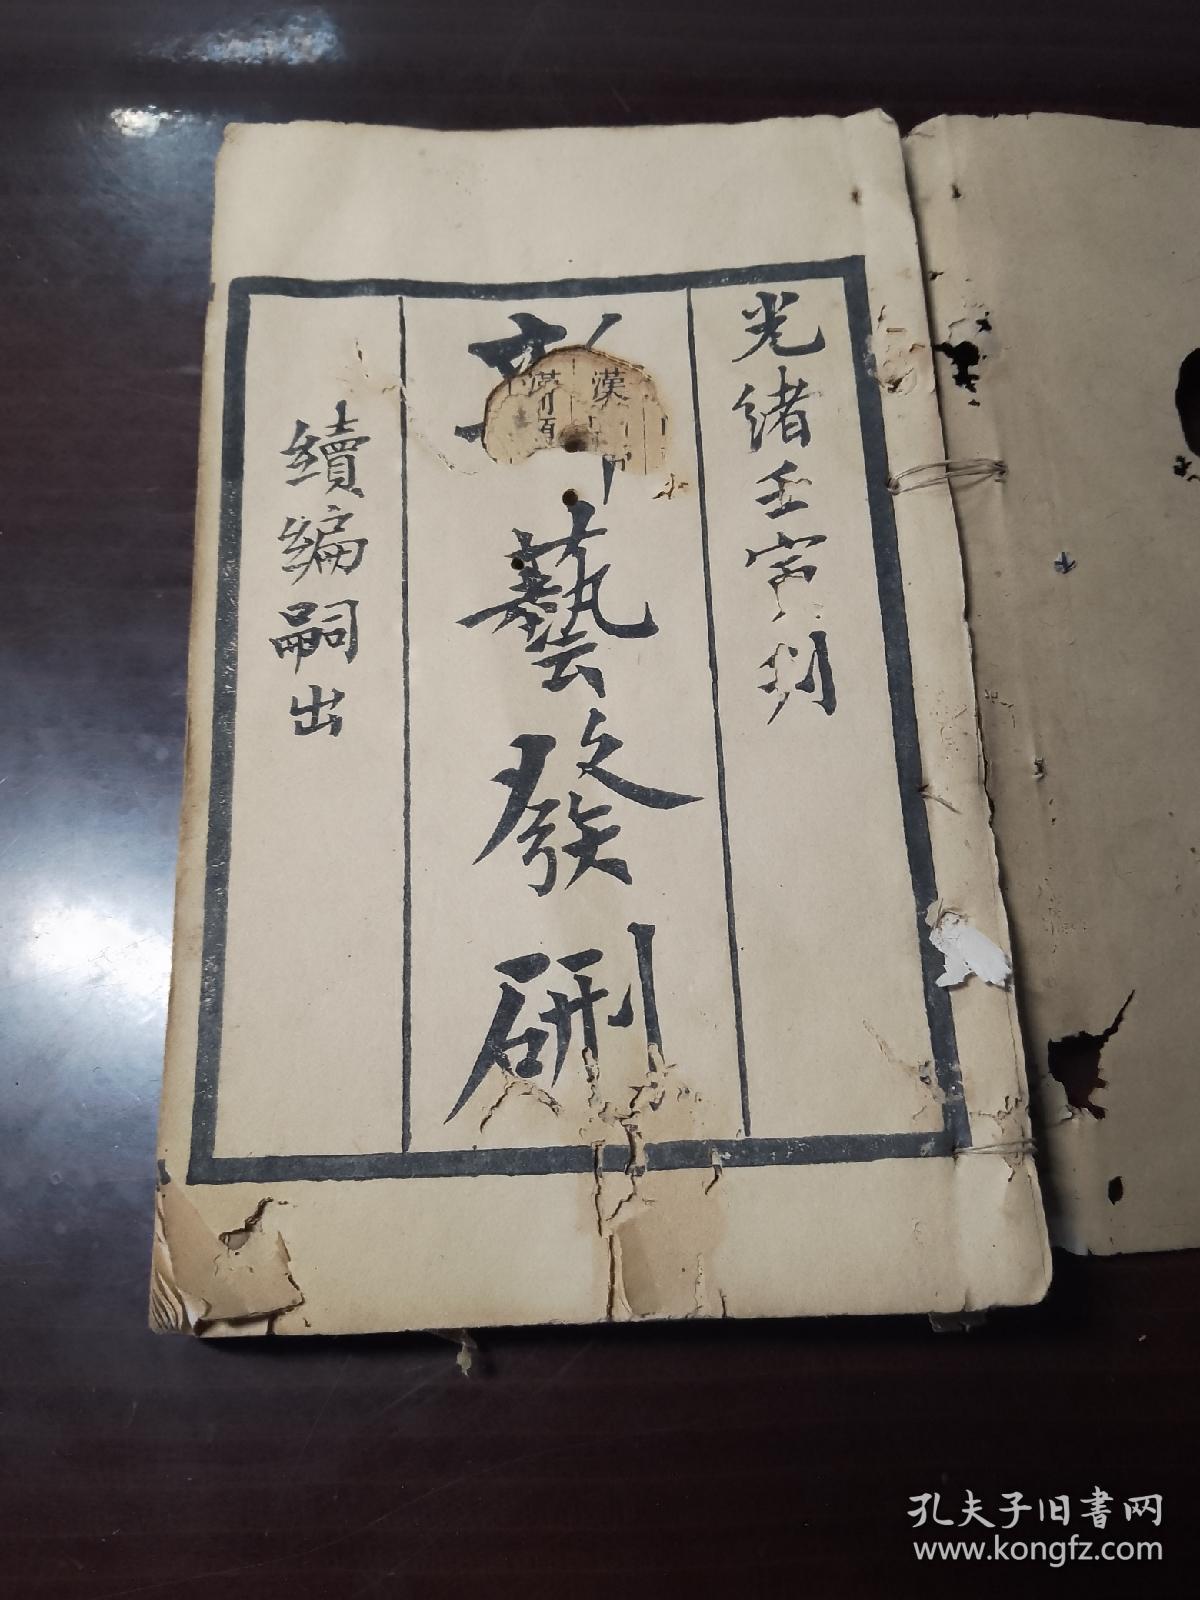 光緒壬寅刊
新藝發硎
續編嗣出
漢
漢
孔夫子旧書网
www.kongfz.com